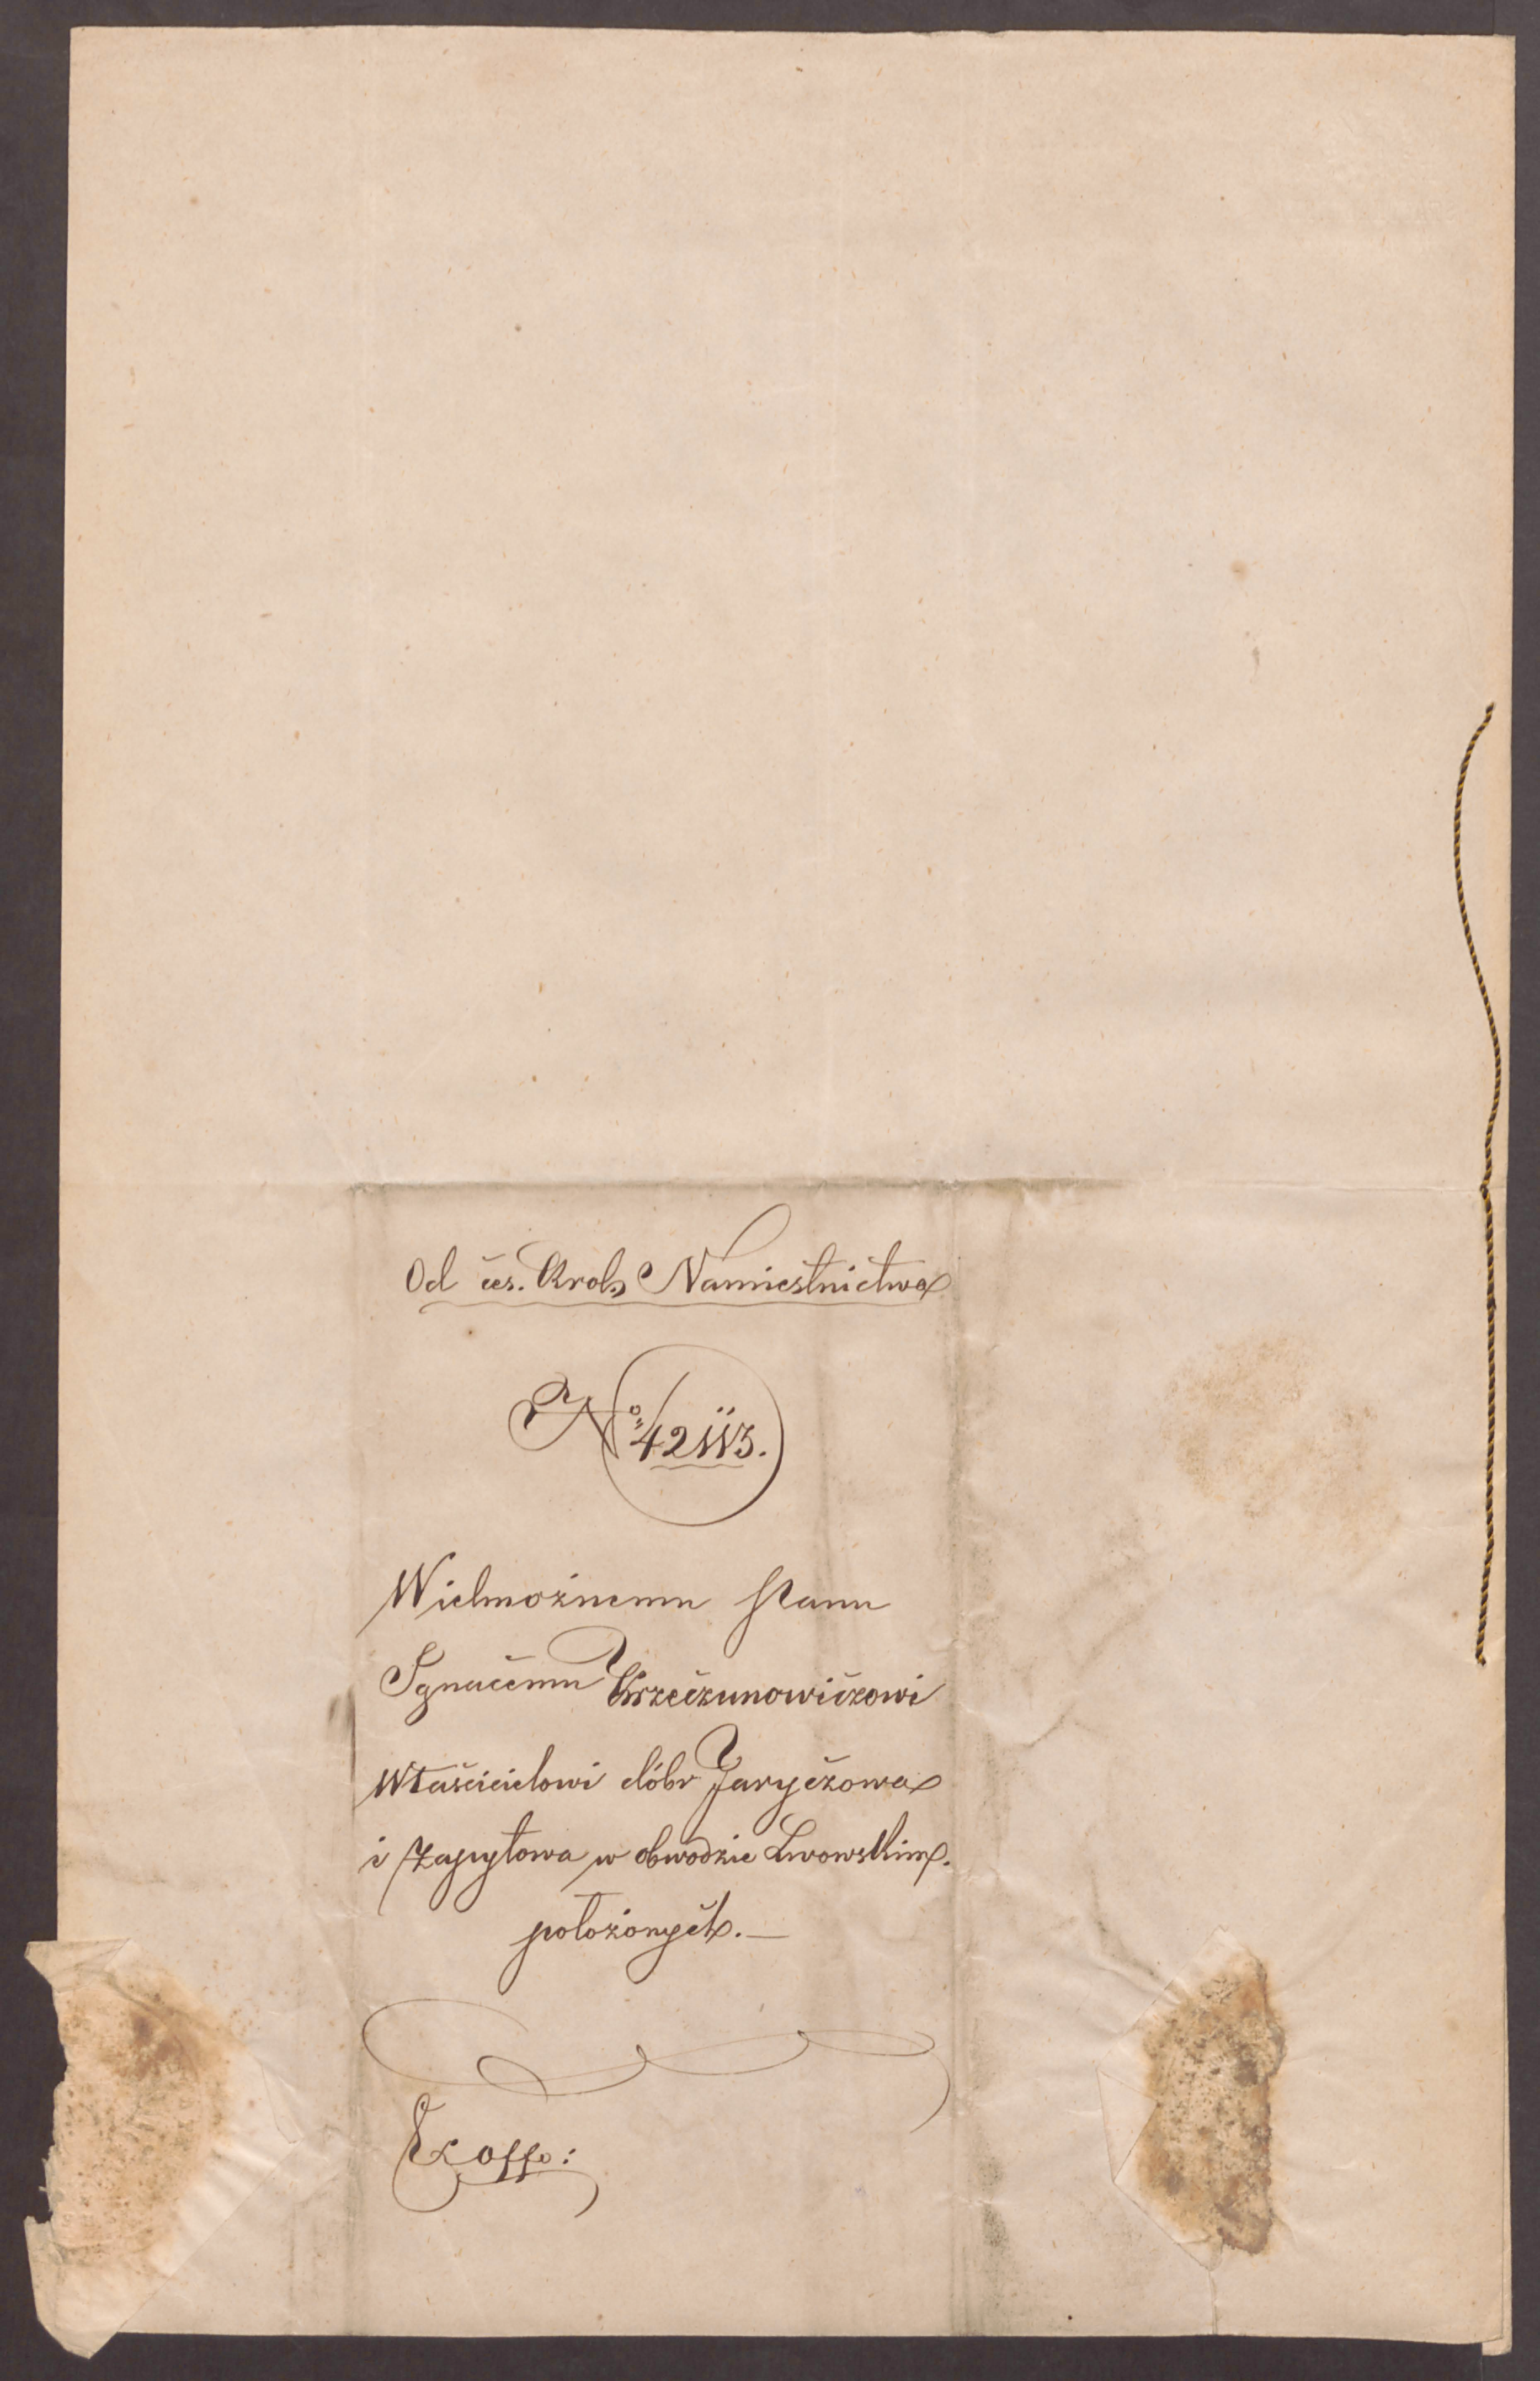 Od ces. Krol. Namiestnictwa
No 42113.
Wielmożnemu Panu
Ignacemu Krzeczunowiczowi
Właścicielowi dóbr Jaryczowa
i Zapytowa w obwodzie Lwowskim.
położonych. —
Ex offo: